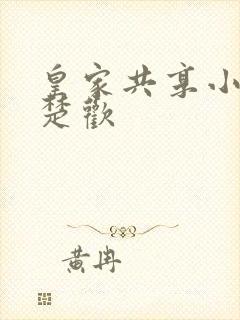 皇家共享小
楚歡
黄冉